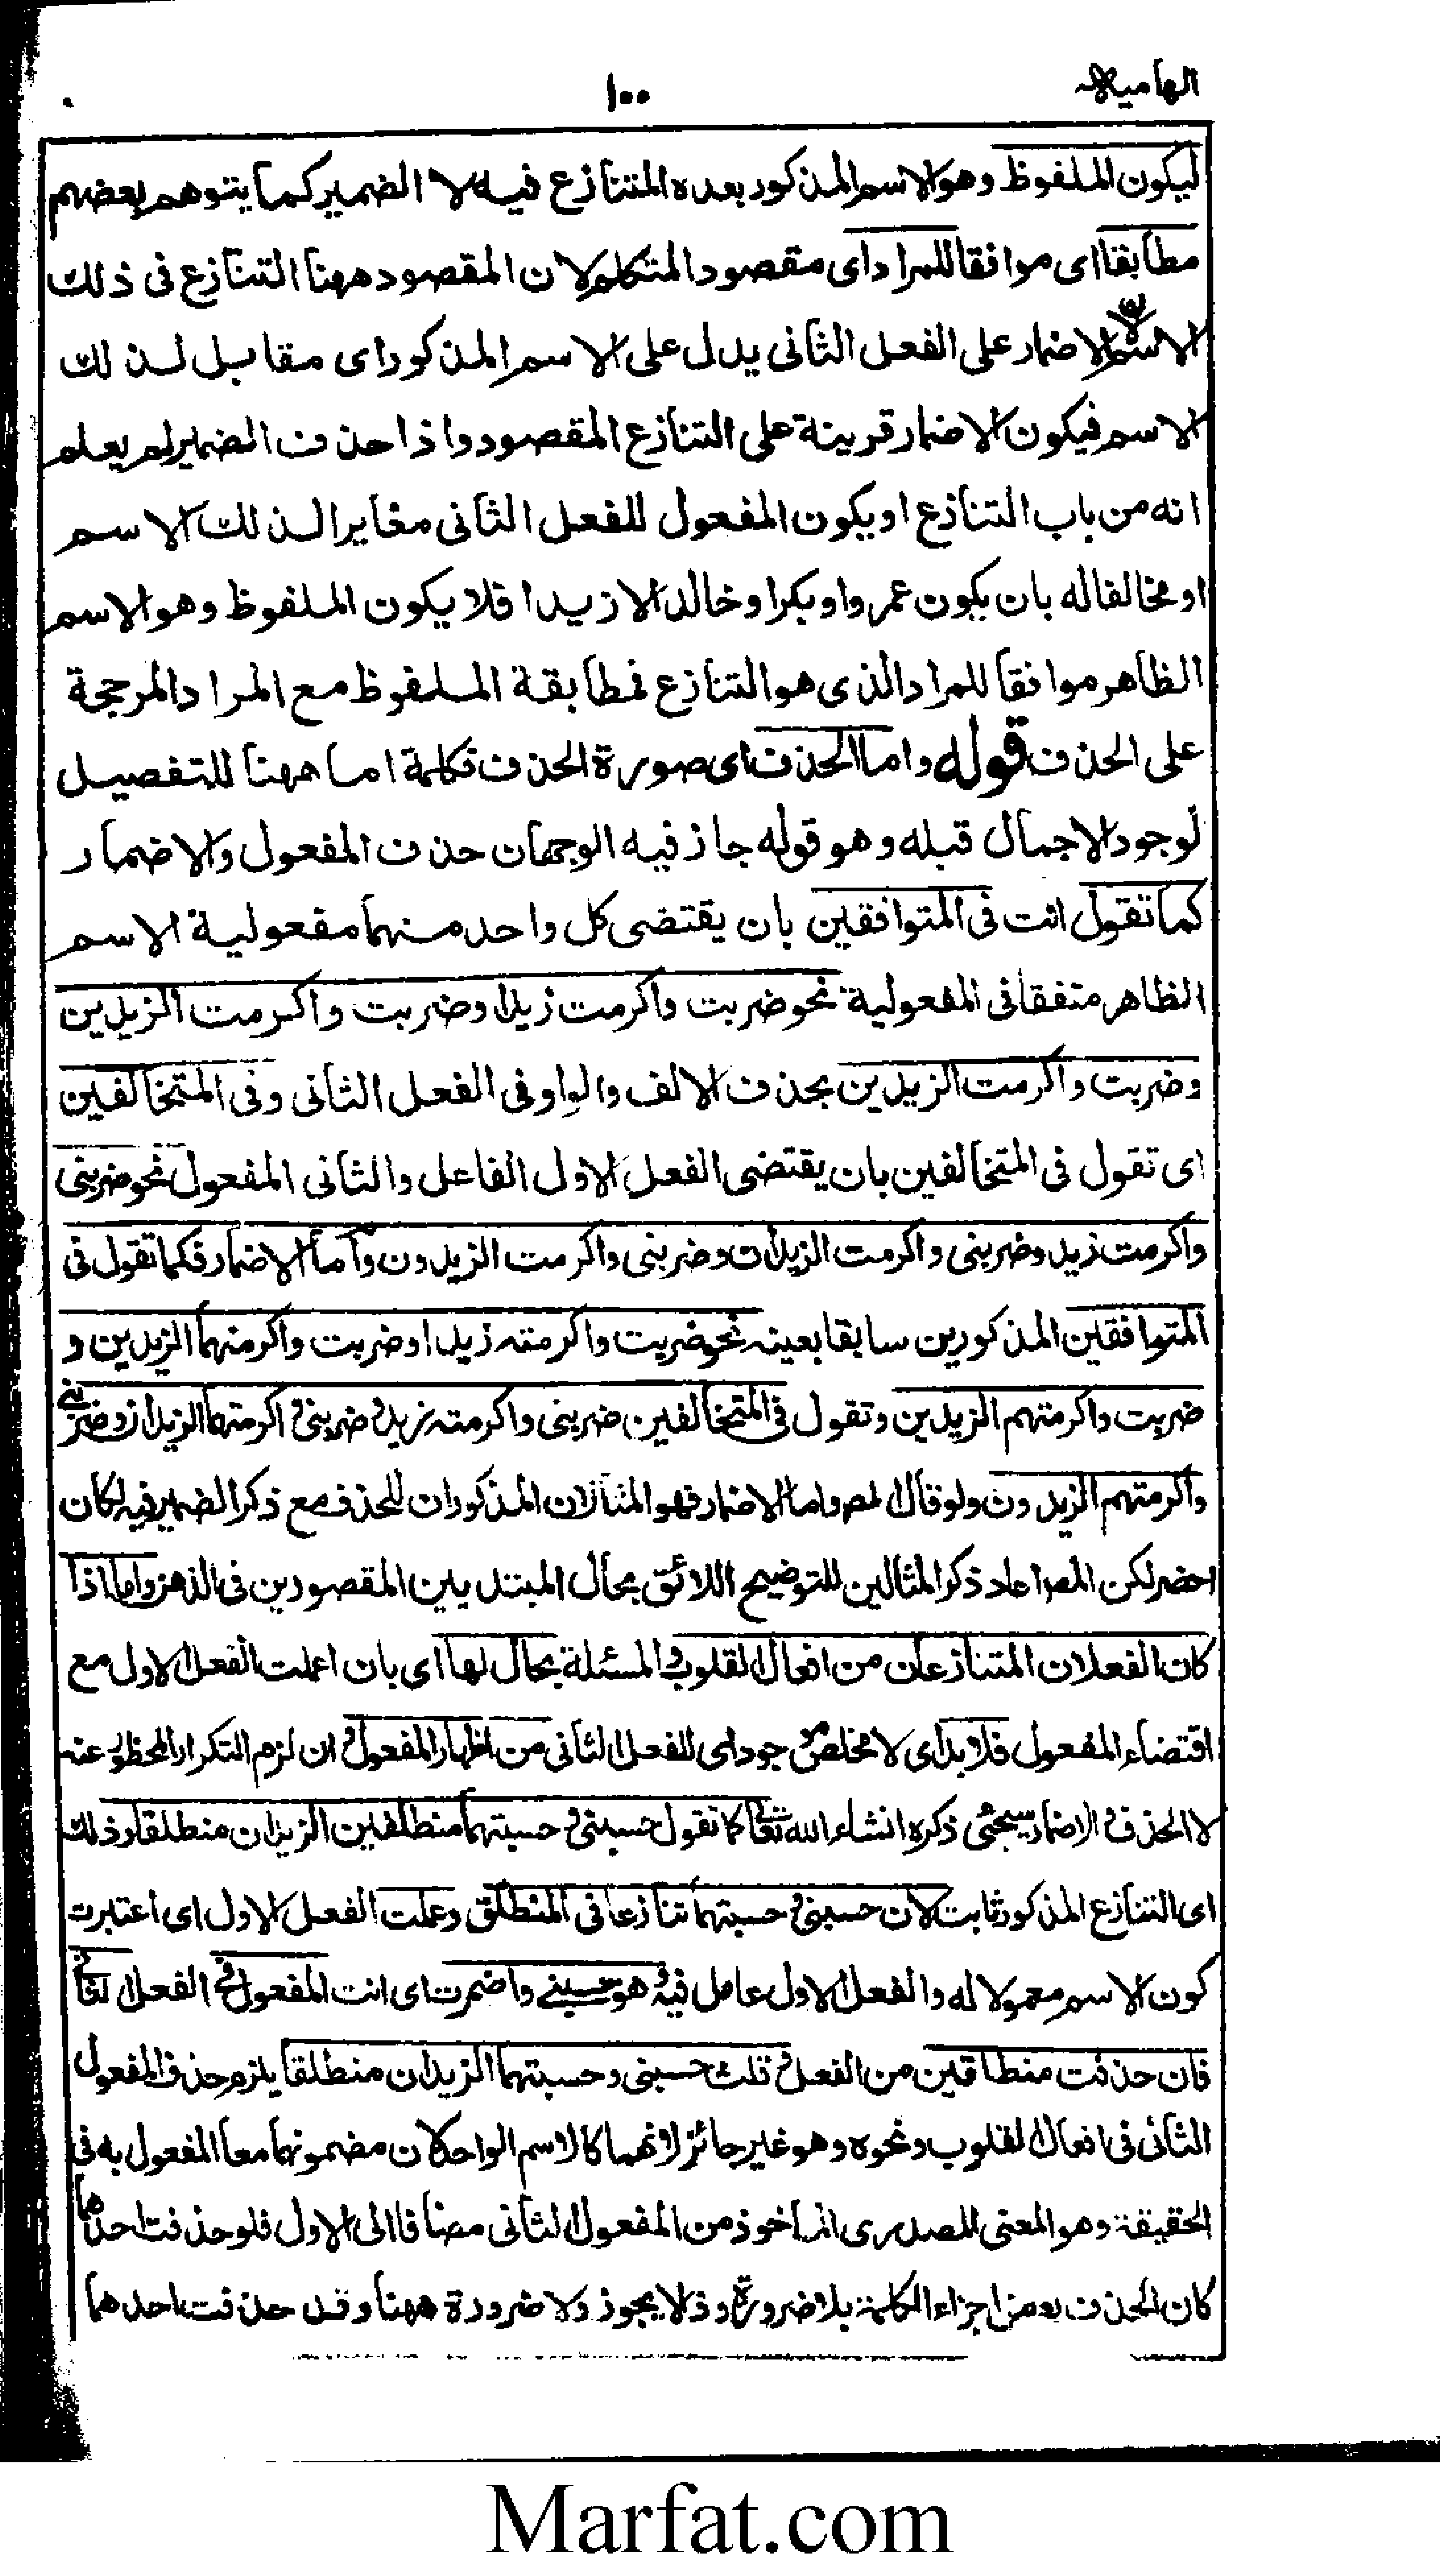 الهامية
١٠٠
ليكون الملفوظ وهو الاسم المذكور بعده المتنازع فيه لا الضمير كما يتوهم بعضهم
مطابقا اى موافقا للمراد اى مقصود المتكلم لان المقصود ههنا التنازع فى ذلك
الاسم الاضمار على الفعل الثانى يدل على الاسم المذكور اى مقابل لذلك
الاسم فيكون الاضمار قرينة على التنازع المقصود واذا حذف الضمير لم يعلم
انه من باب التنازع او يكون المفعول للفعل الثانى مغايرا لذلك الاسم
او مخالفا له بان يكون عمروا وبكرا وخالدا لا زيدا فلا يكون الملفوظ وهو الاسم
الظاهر موافقا للمراد الذى هو التنازع فمطابقة الملفوظ مع المراد المرجحة
على الحذف قوله واما الحذف اى صورة الحذف فكلمة اما ههنا للتفصيل
لوجود الاجمال قبله وهو قوله جاز فيه الوجهان حذف المفعول والاضمار
كما تقول انت فى المتوافقين بان يقتضى كل واحد منهما مفعولية الاسم
الظاهر متفقا فى المفعولية نحو ضربت واكرمت زيدا وضربت واكرمت الزيدين
وضربت واكرمت الزيدين بحذف الالف والواو فى الفعل الثانى وفى المتخالفين
اى تقول فى المتخالفين بان يقتضى الفعل الاول الفاعل والثانى المفعول نحو ضربنى
واكرمت زيد وضربنى واكرمت الزيدان وضربنى واكرمت الزيدون واما الاضمار فكما تقول فى
المتوافقين المذكورين سابقا بعينه نحو ضربت واكرمته زيدا وضربت واكرمتهما الزيدين و
ضربت واكرمتهم الزيدين وتقول فى المتخالفين ضربنى واكرمته زيد وضربنى واكرمتهما الزيدان وضربنى
واكرمتهم الزيدون ولو قال المص واما الاضمار فهو المثالان المذكوران للحذف مع ذكر الضمير فيه لكان
احضر لكن المص اعاد ذكر المثالين للتوضيح اللائق بحال المبتديين المقصودين فى الذهن واما اذا
كان الفعلان المتنازعان من افعال القلوب والمسئلة بحالها اى بان اعملت الفعل الاول مع
اقتضاء المفعول فلا بد اى لا مخلص موجود اى للفعل الثانى من اظهار المفعول وان لزم التكرار المحظور عنه
لا الحذف والاضمار سيجئ ذكره انشاء الله تعالى كما تقول حسبنى وحسبتهما منطلقين الزيدان منطلقا وذلك
اى التنازع المذكور ثابت لان حسبنى وحسبتهما تنازعا فى المنطلق وعملت الفعل الاول اى اعتبرت
كون الاسم معمولا له والفعل الاول عامل فيه وهو حسبنى واضمرت اى انت المفعول فى الفعل الثانى
فان حذفت منطلقين من الفعل وقلت حسبنى وحسبتهما الزيدان منطلقا يلزم حذف المفعول
الثانى فى افعال القلوب ونحوه وهو غير جائز لانهما كالاسم الواحد لان مضمونهما معا المفعول به فى
الحقيقة وهو المعنى المصدرى الماخوذ من المفعول الثانى مضافا الى الاول فلو حذفت احدهما
كان الحذف بعض اجزاء الكلمة بلا ضرورة وذلا يجوز ولا ضرورة ههنا وقد حذفت احدهما
Marfat.com